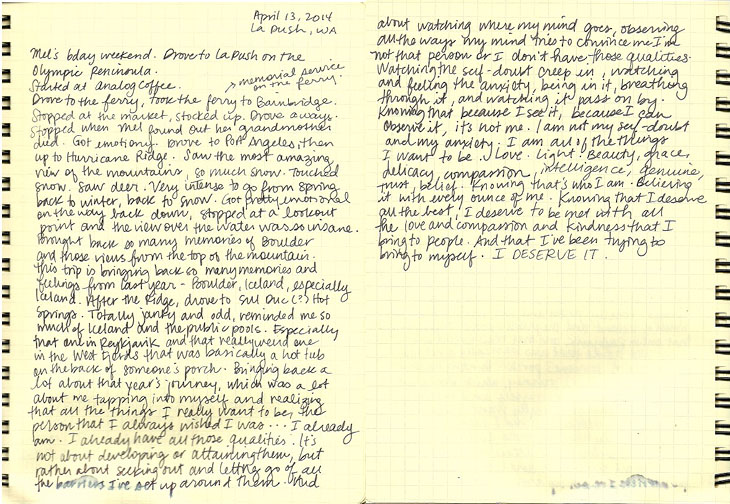 April 13, 2014
La Push, WA
Mel's bday weekend. Drove to La Push on the
Olympic Peninsula.
Started at Analog Coffee.
memorial service
on the ferry.
Drove to the ferry, took the ferry to Bainbridge.
Stopped at the market, stocked up. Drove a ways.
Stopped when Mel found out her grandmother
died. Got emotional. Drove to Port Angeles, then
up to Hurricane Ridge. Saw the most amazing
view of the mountains, so much snow. Touched
snow. Saw deer. Very intense to go from spring
back to winter, back to snow. Got pretty emotional
on the way back down, stopped at a lookout
point and the view over the water was so insane.
Brought back so many memories of Boulder
and those views from the top of the mountain.
This trip is bringing back so many memories and
feelings from last year - Boulder, Iceland, especially
Iceland. After the Ridge, drove to Sul Duc (?) Hot
Springs. Totally janky and odd, reminded me so
much of Iceland and the public pools. Especially
that one in Reykjavik and that really weird one
in the West Fjords that was basically a hot tub
on the back of someone's porch. Bringing back a
lot about that year's journey, which was a lot
about me tapping into myself and realizing
that all the things I really want to be, the
person that I always wished I was... I already
am. I already have all those qualities. It's
not about developing or attaining them, but
rather about seeking out and letting go of all
the barriers I've set up around them. And
about watching where my mind goes, observing
all the ways my mind tries to convince me I'm
not that person or I don't have those qualities.
Watching the self-doubt creep in, watching
and feeling the anxiety, being in it, breathing
through it, and watching it pass on by.
Knowing that because I see it, because I can
observe it, it's not me. I am not my self-doubt
and my anxiety. I am all of the things
I want to be. Love. Light. Beauty, grace,
delicacy, compassion, intelligence, genuine,
trust, belief. Knowing that's who I am. Believing
it with every ounce of me. Knowing that I deserve
all the best, I deserve to be met with all
the love and compassion and kindness that I
bring to people. And that I've been trying to
bring to myself. I DESERVE IT.